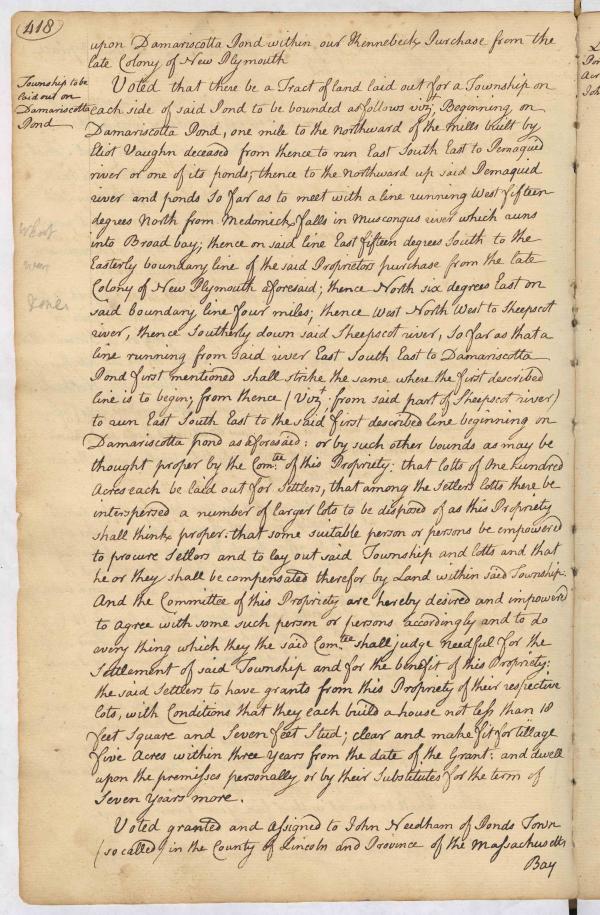 418
upon Damariscotta Pond within our Kennebeck Purchase from the
late Colony of New Plymouth
Township to be
laid out on
Damariscotta
Pond
Voted that there be a Tract of land laid out for a Township on
each side of said Pond to be bounded as follows vizt, Beginning on
Damariscotta Pond, one mile to the northward of the mills built by
Eliot Vaughn deceased from thence to run East South East to Pemaquid
river or one of its ponds; thence to the northward up said Pemaquid
river and ponds so far as to meet with a line running West fifteen
degrees North from Medomick falls in Muscongus river which runs
into Broad bay; thence on said line East fifteen degrees South to the
Easterly boundary line of the said Proprietors purchase from the late
Colony of New Plymouth aforesaid; thence North six degrees East on
said boundary line four miles; thence West North West to Sheepscot
river, thence Southerly down said Sheepscot river, so far as that a
line running from said river East South East to Damariscotta
Pond first mentioned shall strike the same where the first described
line is to begin; from thence (vizt. from said part of Sheepscot river)
to run East South East to the said first described line beginning on
Damariscotta pond as aforesaid: or by such other bounds as may be
thought proper by the Comtee. of this Propriety: that lotts of one hundred
Acres each be laid out for Settlers, that among the Setlers lotts there be
interspersed a number of larger lots to be disposed of as this Propriety
shall think proper: that some suitable person or persons be empowered
to procure Setlors and to lay out said Township and lotts and that
he or they shall be compensated therefor by Land within said Township.
And the Committee of this Propriety are hereby desired and impowered
to agree with some such person or persons accordingly and to do
every thing which they the said Comtee. shall judge needful for the
Settlement of said Township and for the benefit of this Propriety:
the said Settlers to have grants from this Propriety of their respective
lots, with Conditions that they each build a house not less than 18
feet Square and Seven feet Stud; clear and make fit for tillage
five Acres within three Years from the date of the Grant: and dwell
upon the premisses personally or by their Substitutes for the term of
Seven Years more.
Voted granted and assigned to John Needham of Ponds Town
(so called) in the County of Lincoln and Province of the Massachusetts
Bay